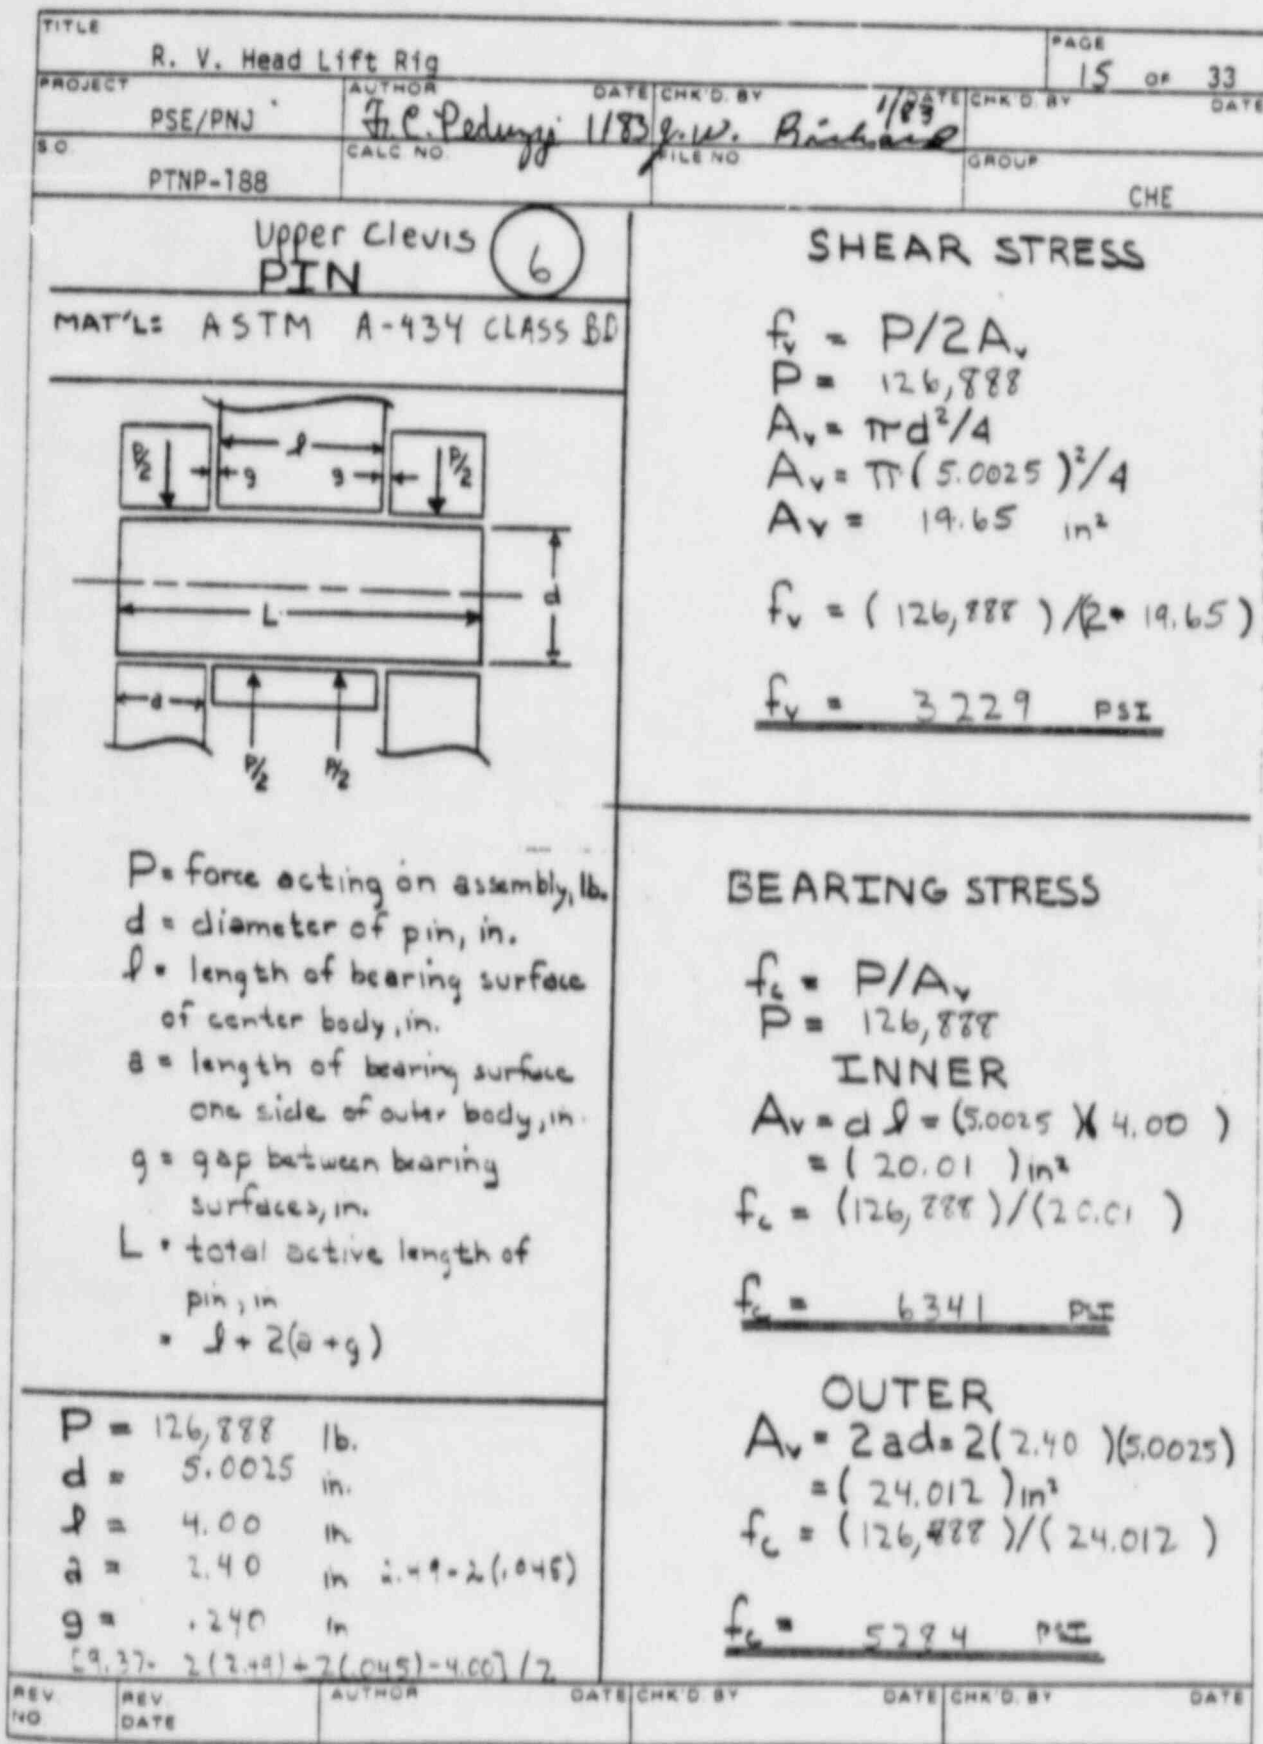 TITLE
R. V. Head Lift Rig
PAGE
15 OF 33
PROJECT
PSE/PNJ
AUTHOR
F. C. Peduzzi
DATE
1/83
CHK'D. BY
J. W. Richard
DATE
1/83
CHK'D. BY
DATE
S.O.
PTNP-188
CALC NO.
FILE NO.
GROUP
CHE
Upper Clevis
PIN
6
MAT'L: ASTM A-434 CLASS BD
P/2
g
l
g
P/2
L
d
a
P/2
P/2
P = force acting on assembly, lb.
d = diameter of pin, in.
l = length of bearing surface
of center body, in.
a = length of bearing surface
one side of outer body, in.
g = gap between bearing
surfaces, in.
L = total active length of
pin, in
= l + 2(a+g)
P = 126,888 lb.
d = 5.0025 in.
l = 4.00 in
a = 2.40 in 2.49-2(.045)
g = .240 in
[9.37- 2(2.49)+2(.045)-4.00]/2
SHEAR STRESS
fv = P/2Av
P = 126,888
Av = πd²/4
Av = π(5.0025)²/4
Av = 19.65 in²
fv = (126,888)/(2• 19.65)
fv = 3229 PSI
BEARING STRESS
fc = P/Av
P = 126,888
INNER
Av = dl = (5.0025)(4.00)
= (20.01) in²
fc = (126,888)/(20.01)
fc = 6341 PSI
OUTER
Av = 2ad = 2(2.40)(5.0025)
= (24.012) in²
fc = (126,888)/(24.012)
fc = 5284 PSI
REV. NO.
REV. DATE
AUTHOR
DATE
CHK'D. BY
DATE
CHK'D. BY
DATE